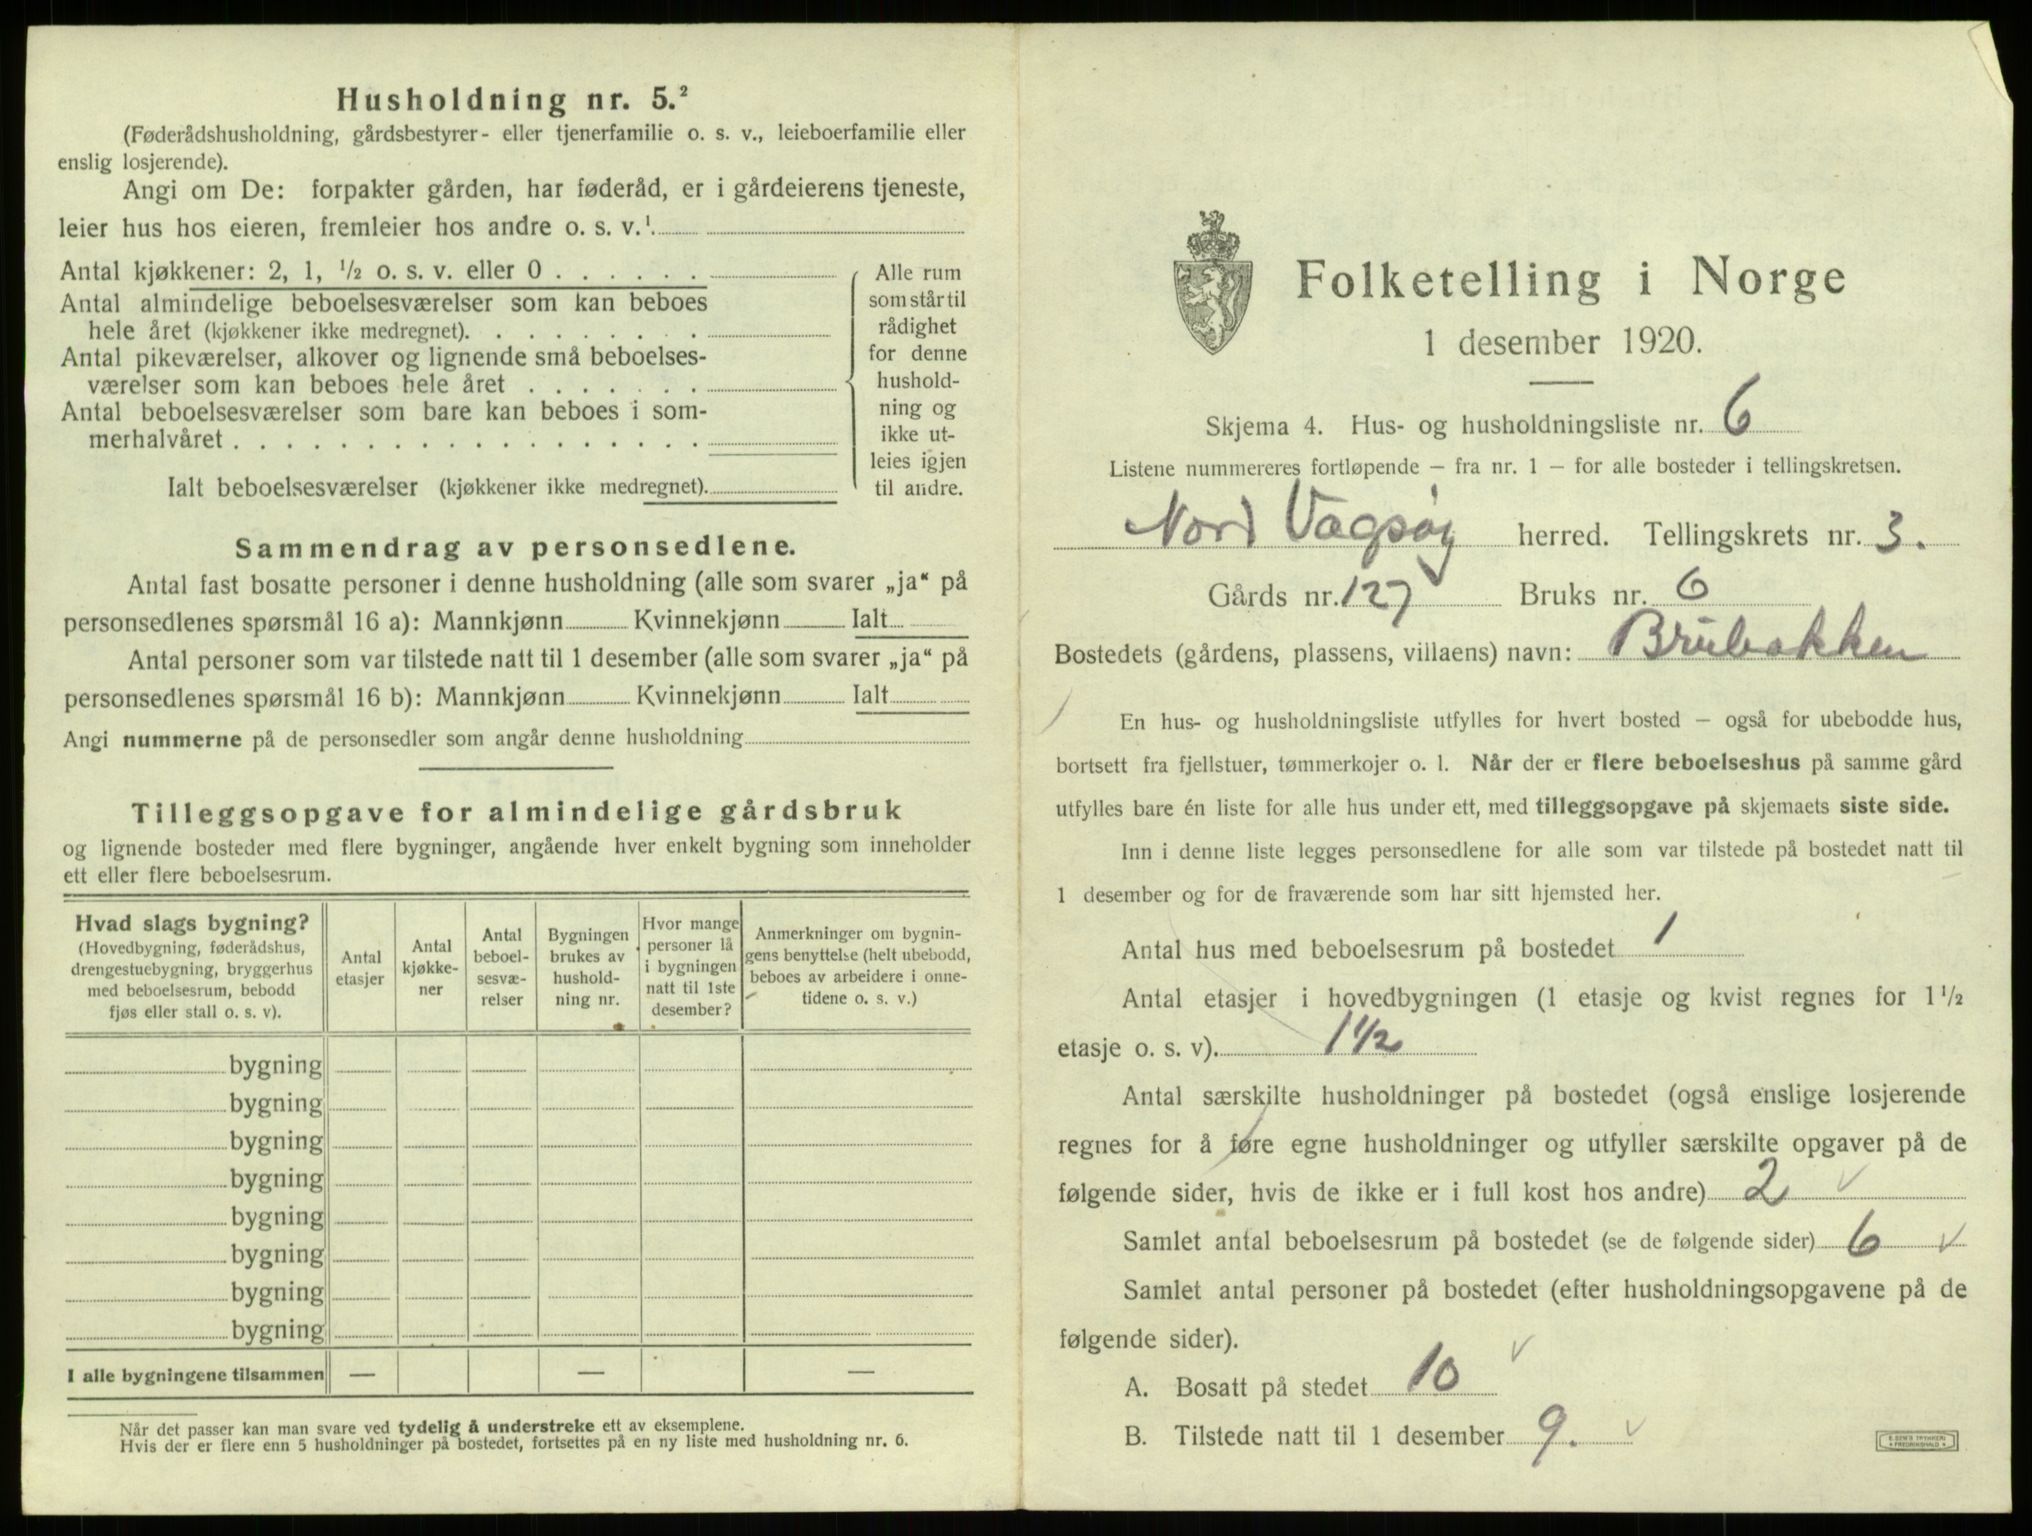 Husholdning nr. 5.²
(Føderådshusholdning, gårdsbestyrer- eller tjenerfamilie o. s. v., leieboerfamilie eller
enslig losjerende).
Angi om De: forpakter gården, har føderåd, er i gårdeierens tjeneste,
leier hus hos eieren, fremleier hos andre o. s. v.¹
Antal kjøkkener: 2, 1, ½ o. s. v. eller 0 . . . . . .
Antal almindelige beboelsesværelser som kan beboes
hele året (kjøkkener ikke medregnet). . . . . . . . .
Antal pikeværelser, alkover og lignende små beboelses-
værelser som kan beboes hele året . . . . . . .
Antal beboelsesværelser som bare kan beboes i som-
merhalvåret . . . . . . . . . . . . . . . . . .
Ialt beboelsesværelser (kjøkkener ikke medregnet).
Alle rum
som står til
rådighet
for denne
hushold-
ning og
ikke ut-
leies igjen
til andre.
Sammendrag av personsedlene.
Antal fast bosatte personer i denne husholdning (alle som svarer „ja“ på
personsedlenes spørsmål 16 a): Mannkjønn Kvinnekjønn Ialt
Antal personer som var tilstede natt til 1 desember (alle som svarer „ja“ på
personsedlenes spørsmål 16 b): Mannkjønn Kvinnekjønn Ialt
Angi nummerne på de personsedler som angår denne husholdning
Tilleggsopgave for almindelige gårdsbruk
og lignende bosteder med flere bygninger, angående hver enkelt bygning som inneholder
ett eller flere beboelsesrum.
Hvad slags bygning?
(Hovedbygning, føderådshus,
drengestuebygning, bryggerhus
med beboelsesrum, bebodd
fjøs eller stall o. s. v).
Antal
etasjer
Antal
kjøkke-
ner
Antal
beboel-
sesvæ-
relser
Bygningen
brukes av
hushold-
ning nr.
Hvor mange
personer lå
i bygningen
natt til 1ste
desember?
Anmerkninger om bygnin-
gens benyttelse (helt ubebodd,
beboes av arbeidere i onne-
tidene o. s. v.)
bygning
bygning
bygning
bygning
bygning
bygning
bygning
bygning
I alle bygningene tilsammen — — —
Når det passer kan man svare ved tydelig å understreke ett av eksemplene.
Hvis der er flere enn 5 husholdninger på bostedet, fortsettes på en ny liste med husholdning nr. 6.
Folketelling i Norge
1 desember 1920.
Skjema 4. Hus- og husholdningsliste nr. 6
Listene nummereres fortløpende – fra nr. 1 – for alle bosteder i tellingskretsen.
Nord Vagsøy herred. Tellingskrets nr. 3.
Gårds nr. 127 Bruks nr. 6
Bostedets (gårdens, plassens, villaens) navn: Brubakken
En hus- og husholdningsliste utfylles for hvert bosted – også for ubebodde hus,
bortsett fra fjellstuer, tømmerkojer o. l. Når der er flere beboelseshus på samme gård
utfylles bare én liste for alle hus under ett, med tilleggsopgave på skjemaets siste side.
Inn i denne liste legges personsedlene for alle som var tilstede på bostedet natt til
1 desember og for de fraværende som har sitt hjemsted her.
Antal hus med beboelsesrum på bostedet 1
Antal etasjer i hovedbygningen (1 etasje og kvist regnes for 1½
etasje o. s. v). 1½
Antal særskilte husholdninger på bostedet (også enslige losjerende
regnes for å føre egne husholdninger og utfyller særskilte opgaver på de
følgende sider, hvis de ikke er i full kost hos andre) 2 ✓
Samlet antal beboelsesrum på bostedet (se de følgende sider) 6 ✓
Samlet antal personer på bostedet (efter husholdningsopgavene på de
følgende sider).
A. Bosatt på stedet 10 ✓
B. Tilstede natt til 1 desember 9. ✓